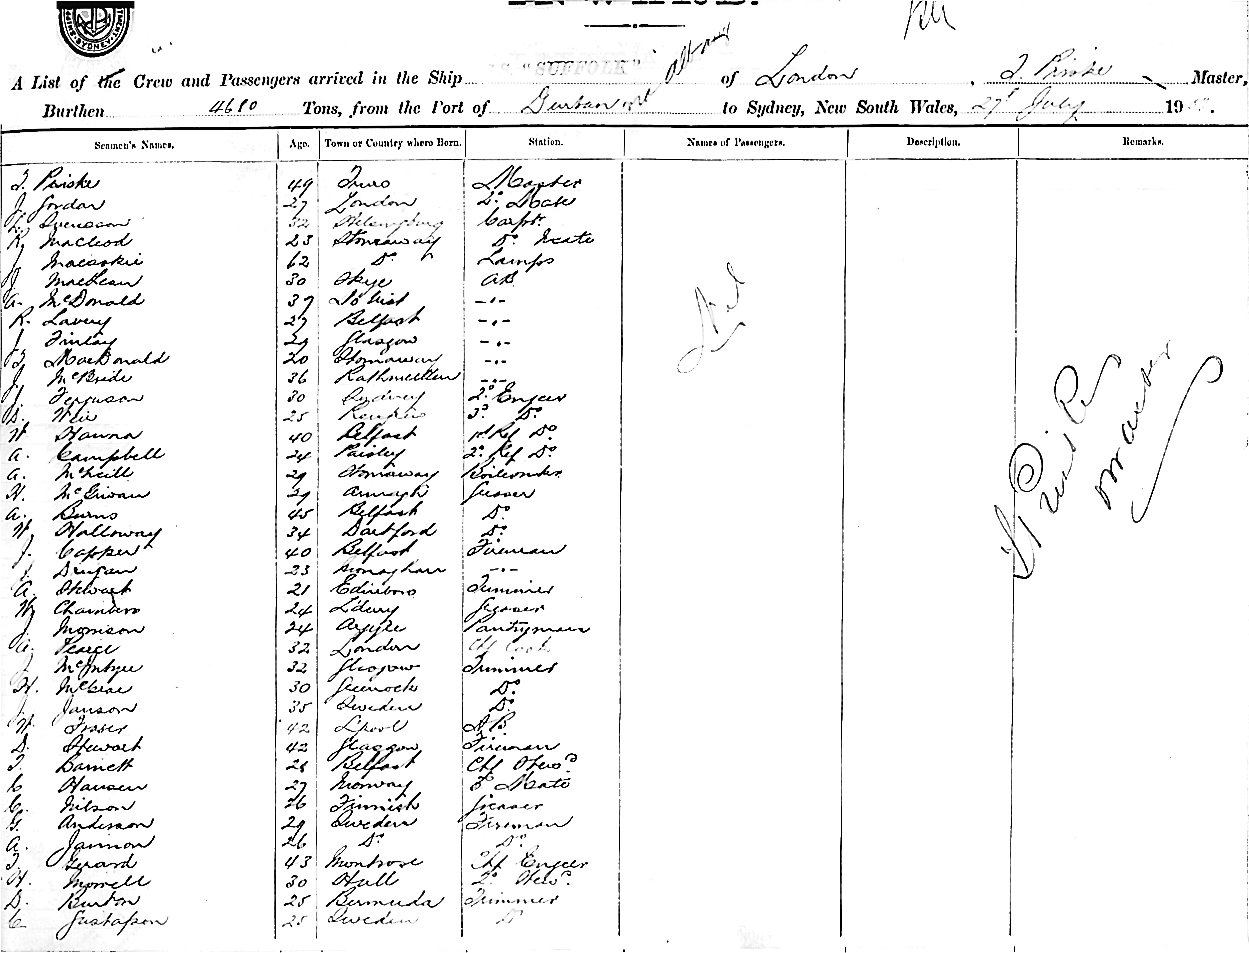 A List of the Crew and Passengers arrived in the Ship "SUFFOLK" of London, T. Priske Master,
Burthen 4610 Tons, from the Port of Durban to Sydney, New South Wales, 27 July 19
Seamen's Names. Age. Town or Country where Born. Station. Names of Passengers. Description. Remarks.
T. Priske 49 Truro Master
J. Jordan 27 London 2° Mate
Svensson 32 Helsingborg Carptr
K. Macleod 23 Stornaway D° Mate
J. Macaskie 62 D° Lamps
J. MacLean 30 Skye AB
A. McDonald 37 So Uist -"-
R. Lavery 27 Belfast -"-
J. Finlay 29 Glasgow -"-
MacDonald 20 Stornaway -"-
J. McBride 36 Rathmullen -"-
J. Ferguson 30 Sydney 2° Engeer
D. Weir 25 3° D°
W. Hanna 40 Belfast 1st Ref D°
A. Campbell 24 Paisley 2° Ref D°
A. McNeill 29 Stornaway
H. McGivan 29 Armagh Greaser
A. Burns 45 Belfast D°
W. Holloway 34 Dartford D°
J. Capper 40 Belfast Fireman
Drugan 23 Monaghan -"-
A. Stewart 21 Edinboro Trimmer
W. Chambers 24 L'derry Greaser
J. Morrison 24 Argyle Pantryman
A. Pearce 32 London Chf Cook
J. McIntyre 32 Glasgow Trimmer
H. McCrae 30 Greenock D°
J. Janson 35 Sweden D°
W. Fraser 42 L'pool A.B.
D. Stewart 42 Glasgow Fireman
T. Barnett 28 Belfast Chf Stewd
C. Hansen 27 Norway Mate
C. Nilson 26 Finnish Greaser
G. Anderson 29 Sweden Fireman
A. Jannon 26 D° D°
T. Gerard 43 Montrose Chf Engeer
H. Morrell 30 Hull 2° Stewd
D. Burton 25 Bermuda Trimmer
C. Gustafson 25 Sweden D°
Nil
T Priske
Master